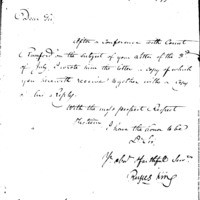 Dear Sir
After a Conference with Count
Rumford on the subject of your letter of the 3d
of July I wrote him the letter a copy of which
you herewith receive together with a Copy
of his Reply.
With the most perfect Respect
I have the Honor to be
Dr Sir
Yr obt. & faithful Serv
Rufus King